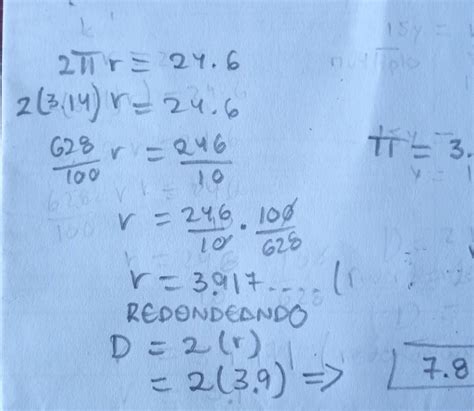 2π r = 24.6
2(3.14) r = 24.6
628/100 r = 246/10
π = 3.
r = 246/10 · 100/628
r = 3.917.... (r
REDONDEANDO
D = 2(r)
= 2(3.9) => 7.8